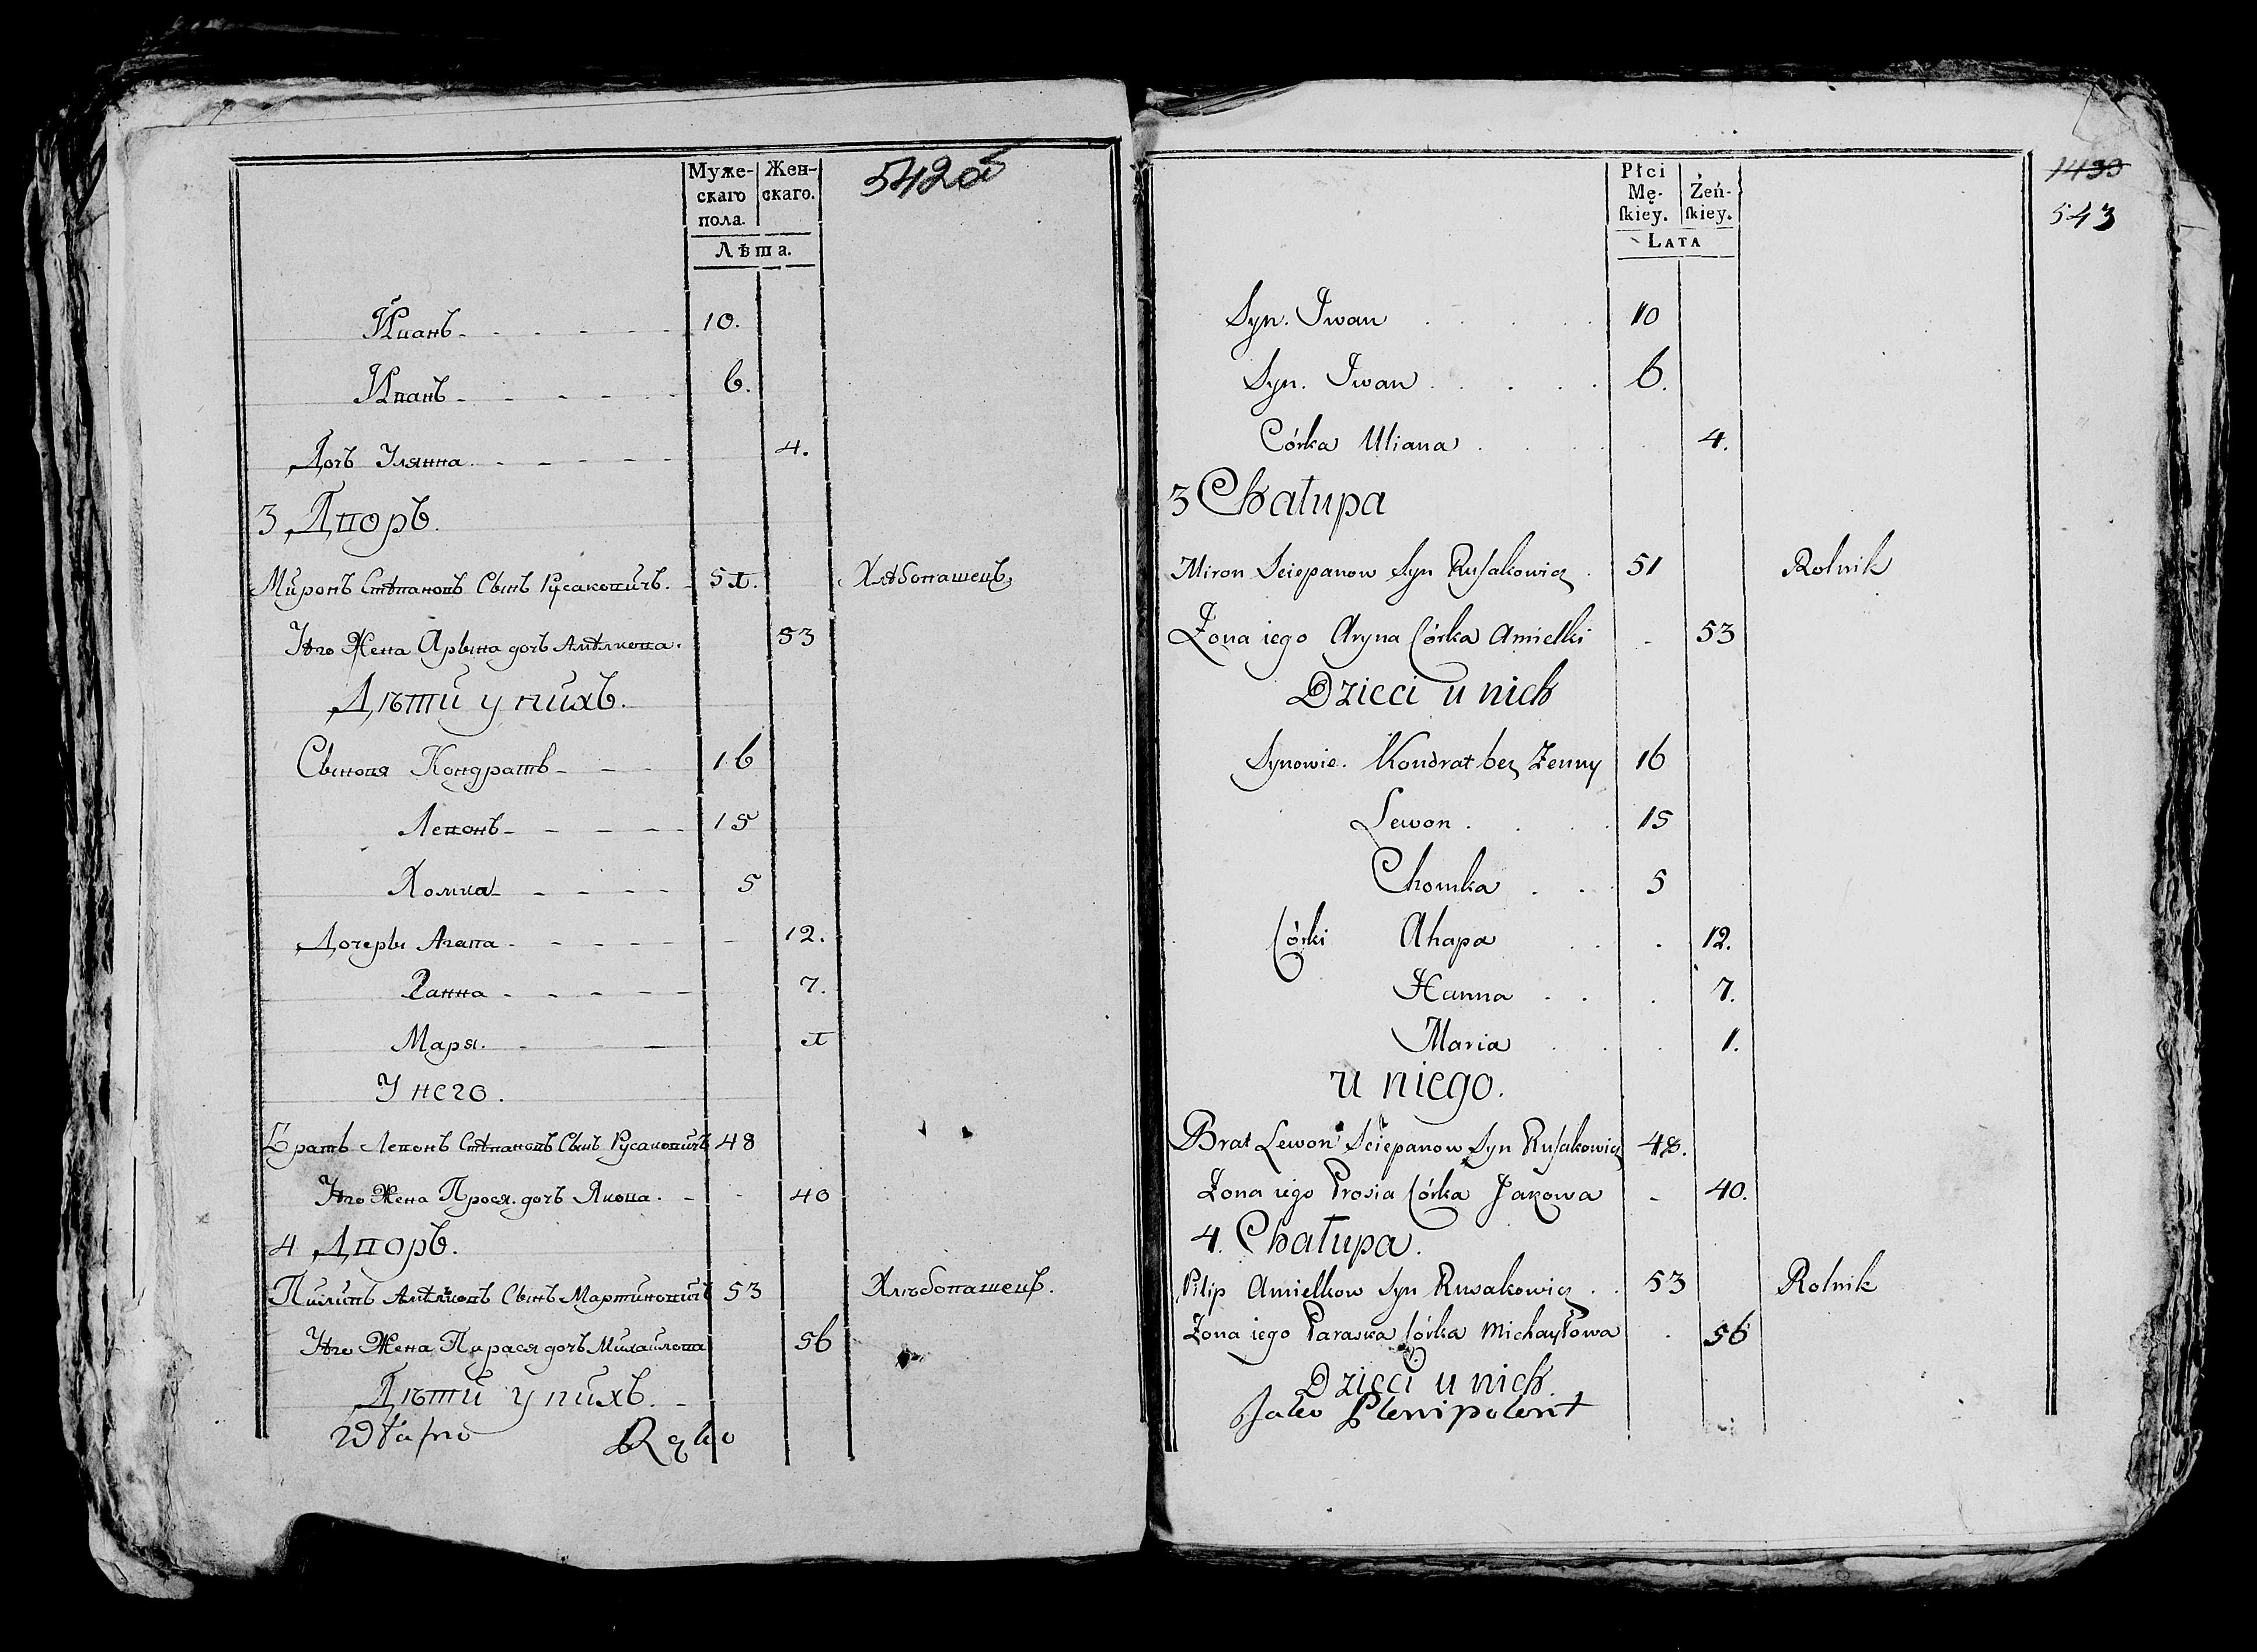 Муже-
скаго
пола.
Жен-
скаго.
Лѣта.
542об
Иванъ 10.
Иванъ 6.
Дочь Улянна 4.
3 Дворъ.
Миронъ Стѣпановъ Сынъ Русаковичъ. 51. Хлѣбопашецъ
Его Жена Арына дочъ Амѣлкова. 53
Дѣти у нихъ.
Сыновя Кондратъ 16
Левонъ 15
Хомка 5
Дочеры Агапа 12.
Ганна 7.
Маря. 1
У него.
Братъ Левонъ Стѣпановъ Сынъ Русаковичъ 48
Его Жена Прося дочъ Якова. 40
4 Дворъ.
Пилипъ Амѣлковъ Сынъ Мартиновичъ 53 Хлѣбопашецъ.
Его Жена Парася дочъ Михайлова 56
Дѣти у нихъ.
Własno Ręko
Płci
Mę-
ſkiey.
Żeń-
ſkiey.
LATA
1433
543
Syn. Iwan 10
Syn. Iwan 6.
Córka Uliana 4.
3 Chałupa
Miron Sciepanow Syn Ruſakowicz 51 Rolnik
Zona iego Aryna Córka Amielki 53
Dzieci u nich
Synowie. Kondrat bez Zenny 16
Lewon 15
Chomka 5
Córki Ahapa 12.
Hanna 7.
Maria 1.
u niego.
Brat Lewon Sciepanow Syn Ruſakowicz 48.
Zona iego Prosia Córka Jakowa 40.
4. Chałupa.
Pilip Amielkow Syn Rusakowicz 53 Rolnik
Zona iego Paraska Córka Michayłowa 56
Dzieci u nich
Jako Plenipotent